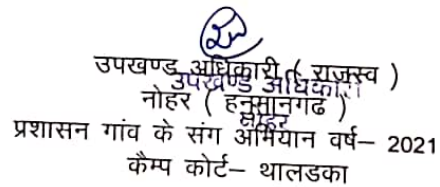 उपखण्ड अधिकारी ( राजस्व )
उपखण्ड अधिकारी
नोहर ( हनुमानगढ )
नोहर
प्रशासन गांव के संग अभियान वर्ष– 2021
कैम्प कोर्ट– थालडका